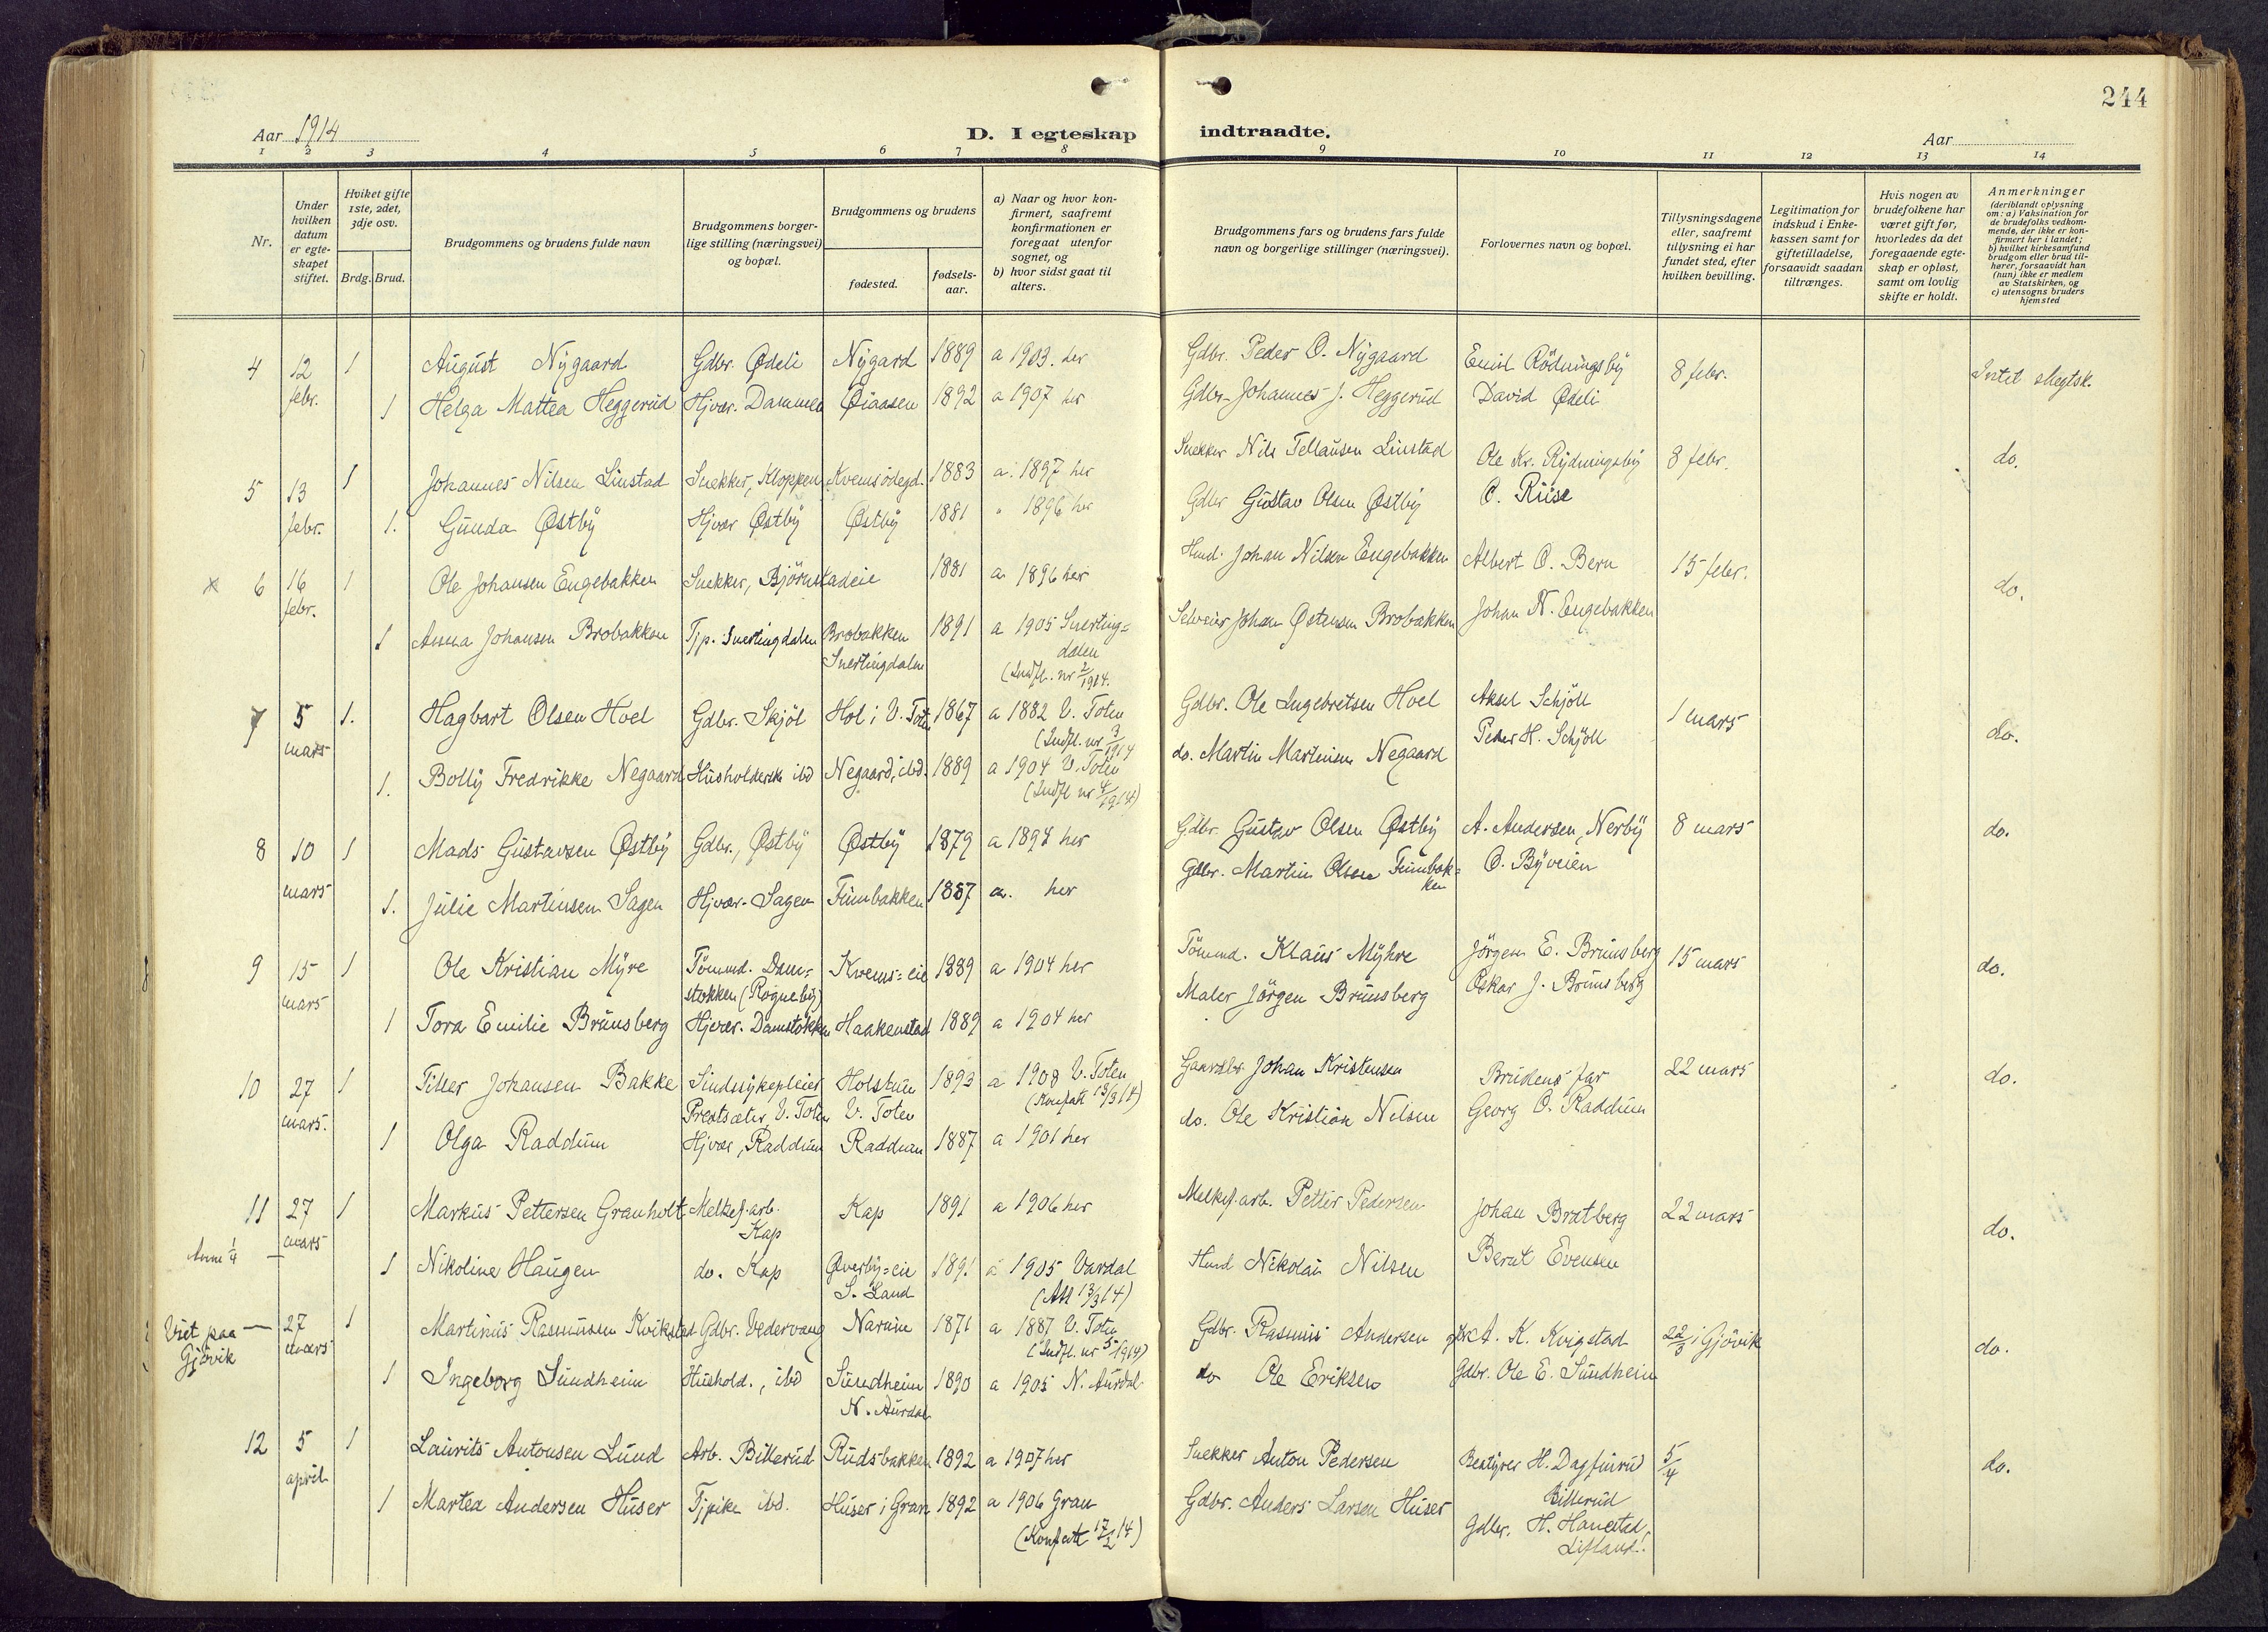 244
Aar 1914
D. I egteskap indtraadte.
Aar
1 2 3 4 5 6 7 8 9 10 11 12 13 14
Nr.
Under hvilken datum er egte-skapet stiftet.
Hviket gifte 1ste, 2det, 3dje osv.
Brdg. Brud.
Brudgommens og brudens fulde navn
Brudgommens borger-lige stilling (næringsvei) og bopæl.
Brudgommens og brudens
fødested.
fødsels-aar.
a) Naar og hvor kon-firmert, saafremt konfirmationen er foregaat utenfor sognet, og
b) hvor sidst gaat til alters.
Brudgommens fars og brudens fars fulde navn og borgerlige stillinger (næringsvei).
Forlovernes navn og bopæl.
Tillysningsdagene eller, saafremt tillysning ei har fundet sted, efter hvilken bevilling.
Legitimation for indskud i Enke-kassen samt for giftetilladelse, forsaavidt saadan tiltrænges.
Hvis nogen av brudefolkene har været gift før, hvorledes da det foregaaende egte-skap er opløst, samt om lovlig skifte er holdt.
Anmerkninger (deriblandt oplysning om: a) Vaksination for de brudefolks vedkom-mende, der ikke er kon-firmert her i landet; b) hvilket kirkesamfund brudgom eller brud til-hører, forsaavidt han (hun) ikke er medlem av Statskirken, og c) utensogns bruders hjemsted
4 12 febr. 1 August Nygaard Gdbr. Ødeli Nygard 1889 a 1903. her Gdbr. Peder O. Nygaard Emil Rödningsby 8 febr. Intet slegtsk.
1 Helga Mattea Heggerud Hjvær. Dammen Øiaasen 1892 a 1907 her Gdbr. Johannes J. Heggerud David Ødeli
5 13 febr. 1 Johannes Nilsen Linstad Snekker, Kloppen Kvemsödegd. 1883 a. 1897 her Snekker Nils Tellausen Linstad Ole Kr. Rydningsby 8 febr. do.
1. Gunda Østby Hjvær Østby Østby 1881 " 1896 her Gdbr Gustav Olsen Østby O. Riise
x 6 16 febr. 1 Ole Johansen Engebakken Snekker, Björnstadeie 1881 a 1896 her Husm. Johan Nilsen Engebakken Albert O. Bern 15 febr. do.
1 Anna Johansen Brobakken Tjp. Snertingdalen Brobakken Snertingdalen 1891 a 1905 Snerting=dalen (Indfl. nr 2/1914. Selveier Johan Østensen Brobakken Johan N. Engebakken
7 5 mars 1. Hagbart Olsen Hoel Gdbr. Skjöl Hol i V. Toten 1867 a 1882 V. Toten (Indfl. nr 3/1914 Gdbr. Ole Ingebretsen Hoel Aksel Schjöll 1 mars do.
1. Bolly Fredrikke Negaard Husholderske ibd Negaard, ibd. 1889 a 1904 V. Toten (Indfl nr 4/1914) do. Martin Martinsen Negaard Peder H. Schjöll
8 10 mars 1 Mads Gustavsen Østby Gdbr., Østby Østby 1879 a 1894 her Gdbr. Gustav Olsen Østby A. Andersen, Nerby 8 mars do.
1. Julie Martinsen Sagen Hjvær. Sagen Finnbakken 1887 a. her Gdbr. Martin Olsen Finnbak=ken O. Byveien
9 15 mars 1 Ole Kristian Myre Tömmd. Dam=stokken (Rogneby) Kvems=eie 1889 a 1904 her Tömmd. Klaus Myhre Jörgen E. Brunsberg 15 mars do.
1 Tora Emilie Brunsberg Hjvær. Damstokken Haakenstad 1889 a 1904 her Maler Jörgen Brunsberg Oskar J. Brunsberg
10 27 mars. 1 Johansen Bakke Sindssykepleier Prestsæter, V. Toten Holstuen V. Toten 1893 a 1908 V. Toten (Konfatt 13/3 14) Gaardbr. Johan Kristensen Brudens far 22 mars do.
1 Olga Raddum Hjvær, Raddum Raddum 1887 a 1901 her do. Ole Kristian Nilsen Georg O. Raddum
11 27 mars 1 Markus Pettersen Granholt Melkef. arb. Kap Kap 1891 a 1906 her Melkef. arb. Petter Pedersen Johan Bratberg 22 mars do.
Anm 1/4 — 1 Nikoline Haugen do. Kap Øverby=eie S. Land 1891 a 1905 Vardal (Att 13/3 14) Husm Nikolai Nilsen Bernt Evensen
Viet paa Gjövik — 27 mars 1 Martinus Rasmusen Kvikstad Gdbr. Vedervang Narum 1871 a 1887 V. Toten (Indfl. nr 5 1914) Gdbr. Rasmus Andersen A. K. Kvigstad 22/3 i Gjövik do.
1 Ingeborg Sundheim Hushold., ibd Sundheim N. Aurdal 1890 a 1905 N. Aurdal do Ole Eriksen Gdbr. Ole E. Sundheim
12 5 april 1 Laurits Antonsen Lund Arb. Billerud Rudsbakken 1892 a 1907 her Snekker Anton Pedersen Bestyrer H. Dagfinrud Billerud 5/4 do.
1 Martea Andersen Huser Tjpike ibd. Huser i Gran 1892 a 1906 Gran (Konfatt 17/2 14) Gdbr. Anders Larsen Huser Gdbr. H. Hanestad,